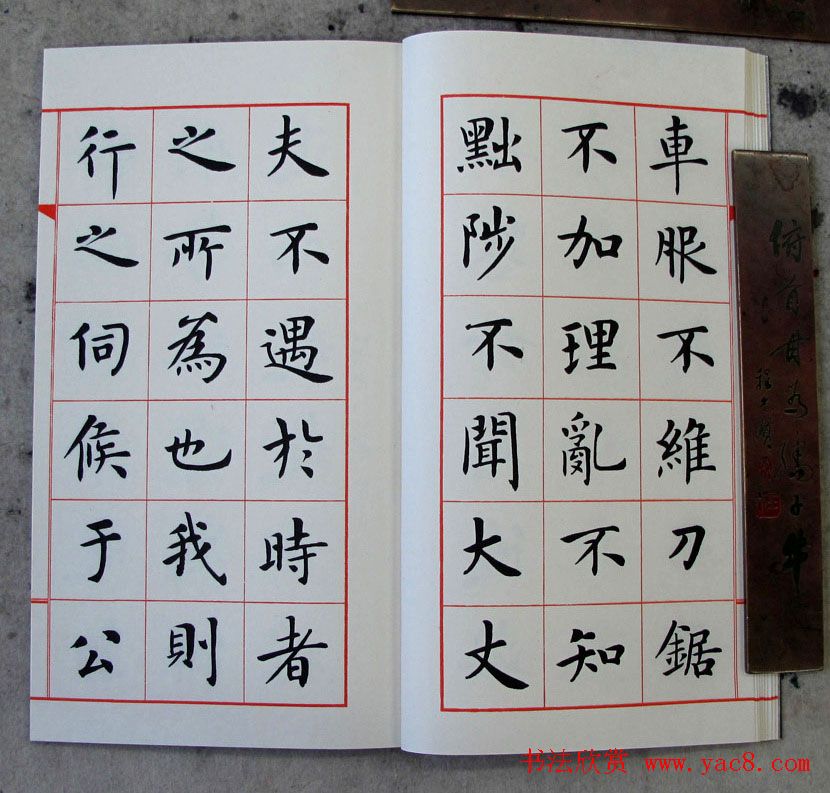 車服不維刀鋸
不加理亂不知
黜陟不聞大丈
夫不遇於時者
之所為也我則
行之伺候于公
俯首甘為孺子牛
书法欣赏 www.yac8.com